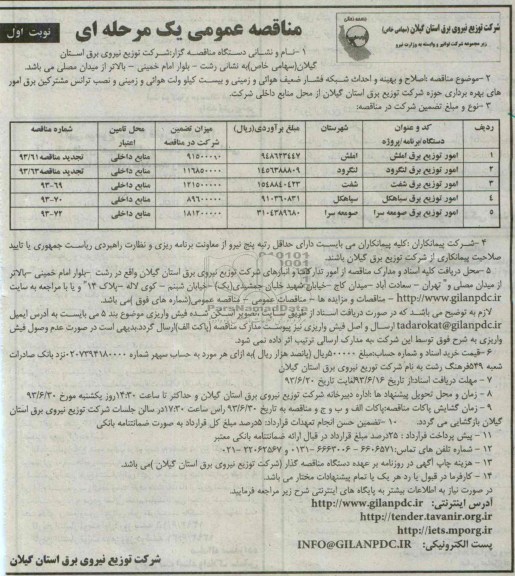 شرکت توزیع نیروی برق استان گیلان (سهامی خاص)
زیر مجموعه شرکت توانیر و وابسته به وزارت نیرو
مناقصه عمومی یک مرحله ای
نوبت اول
۱ -نام و نشانی دستگاه مناقصه گزار:شرکت توزیع نیروی برق استان
گیلان(سهامی خاص)به نشانی رشت - بلوار امام خمینی - بالاتر از میدان مصلی می باشد.
۲ -موضوع مناقصه :اصلاح و بهینه و احداث شبکه فشار ضعیف هوائی و زمینی و بیست کیلو ولت هوائی و زمینی و نصب ترانس مشترکین برق امور
های بهره برداری حوزه شرکت توزیع برق استان گیلان از محل منابع داخلی شرکت.
۳ -نوع و مبلغ تضمین شرکت در مناقصه:
ردیف کد و عنوان دستگاه/برنامه/پروژه شهرستان مبلغ برآوردی(ریال) میزان تضمین شرکت در مناقصه محل تامین اعتبار شماره مناقصه
۱ امور توزیع برق املش املش ۹۴۸۶۲۳۴۴۷ ۹۱۵۰۰۰۸۰ منابع داخلی تجدید مناقصه۹۳/۶۱
۲ امور توزیع برق لنگرود لنگرود ۱۴۵۶۳۸۸۸۰۹ ۱۱۶۸۵۰۰۰۰ منابع داخلی تجدید مناقصه۹۳/۶۳
۳ امور توزیع برق شفت شفت ۱۵۴۸۸۴۰۴۲۳ ۱۲۱۵۰۰۰۰۰ منابع داخلی ۹۳-۶۹
۴ امور توزیع برق سیاهکل سیاهکل ۹۱۰۳۶۰۸۳۱ ۸۹۶۰۰۰۰۰ منابع داخلی ۹۳-۷۰
۵ امور توزیع برق صومعه سرا صومعه سرا ۳۱۰۴۳۸۹۶۸۰ ۱۸۱۲۰۰۰۰۰ منابع داخلی ۹۳-۷۲
۴ -شرکت پیمانکاران :کلیه پیمانکاران می بایست دارای حداقل رتبه پنج نیرو از معاونت برنامه ریزی و نظارت راهبردی ریاست جمهوری یا تایید
صلاحیت پیمانکاری از شرکت توزیع برق گیلان باشند.
۵ -محل دریافت کلیه اسناد و مدارک مناقصه از امور تدارکات و انبارهای شرکت توزیع نیروی برق استان گیلان واقع در رشت -بلوار امام خمینی -بالاتر
از میدان مصلی و" تهران - سعادت آباد -میدان کاج -خیابان شهید خلبان جمشیدی(یک) -خیابان شبنم - کوی لاله -پلاک ۱۴" و یا با مراجعه به سایت
http://www.gilanpdc.ir - مناقصات و مزایده ها - مناقصات عمومی - مناقصه عمومی(شماره های فوق )می باشد.
لازم به توضیح می باشد که در صورت دریافت اسناد از طریق سایت ،تصویر اسکن شده فیش واریزی موضوع بند ۵ می بایست به آدرس ایمیل
tadarokat@gilanpdc.ir ارسال و اصل فیش واریزی نیز پیوست مدارک مناقصه (پاکت الف)ارسال گردد.بدیهی است در صورت عدم وصول فیش
واریزی به شرح فوق توسط این شرکت ،به مدارک ارسالی ترتیب اثر داده نمی شود.
۶ -قیمت خرید اسناد و شماره حساب:مبلغ ۵۰۰۰۰۰ریال (پانصد هزار ریال )به ازای هر مورد به حساب سپهر شماره ۰۲۰۷۳۹۴۱۸۰۰۰۰نزد بانک صادرات
شعبه ۵۴۹فرهنگ رشت به نام شرکت توزیع نیروی برق استان گیلان
۷ - مهلت دریافت اسناد:از تاریخ ۹۳/۶/۱۶لغایت تاریخ ۹۳/۶/۲۰
۸ - زمان و محل تحویل پیشنهاد ها :اداره دبیرخانه شرکت توزیع نیروی برق استان گیلان و حداکثر تا ساعت ۱۴:۳۰روز یکشنبه مورخ ۹۳/۶/۳۰
۹ - زمان گشایش پاکات مناقصه:پاکات الف و ب و ج و مناقصه به تاریخ ۹۳/۶/۳۰ راس ساعت ۱۷:۳۰در سالن جلسات شرکت توزیع نیروی برق استان
گیلان بازگشایی می گردد. ۱۰ -تضمین حسن انجام تعهدات قرارداد: ۵درصد مبلغ کل قرارداد به صورت ضمانتنامه بانکی
۱۱ - پیش پرداخت قرارداد : ۲۵درصد مبلغ قرارداد در قبال ارائه ضمانتنامه بانکی معتبر
۱۲ - شماره تلفن های تماس: ۶۶۰۶۵۷۱ - ۶۶۶۳۰۰۶ -۰۱۳۱ و ۲۲۰۶۲۵۶۷ -۰۲۱
۱۳ - هزینه چاپ آگهی در روزنامه بر عهده دستگاه مناقصه گذار (شرکت توزیع نیروی برق استان گیلان )می باشد.
۱۴ - کارفرما در قبول یا رد هر یک یا تمام پیشنهادات مختار می باشد.
در صورت نیاز به اطلاعات بیشتر به پایگاه های اینترنتی شرح زیر مراجعه فرمایید.
آدرس اینترنتی: http://www.gilanpdc.ir
http://tender.tavanir.org.ir
http://iets.mporg.ir
پست الکترونیکی: INFO@GILANPDC.IR
شرکت توزیع نیروی برق استان گیلان